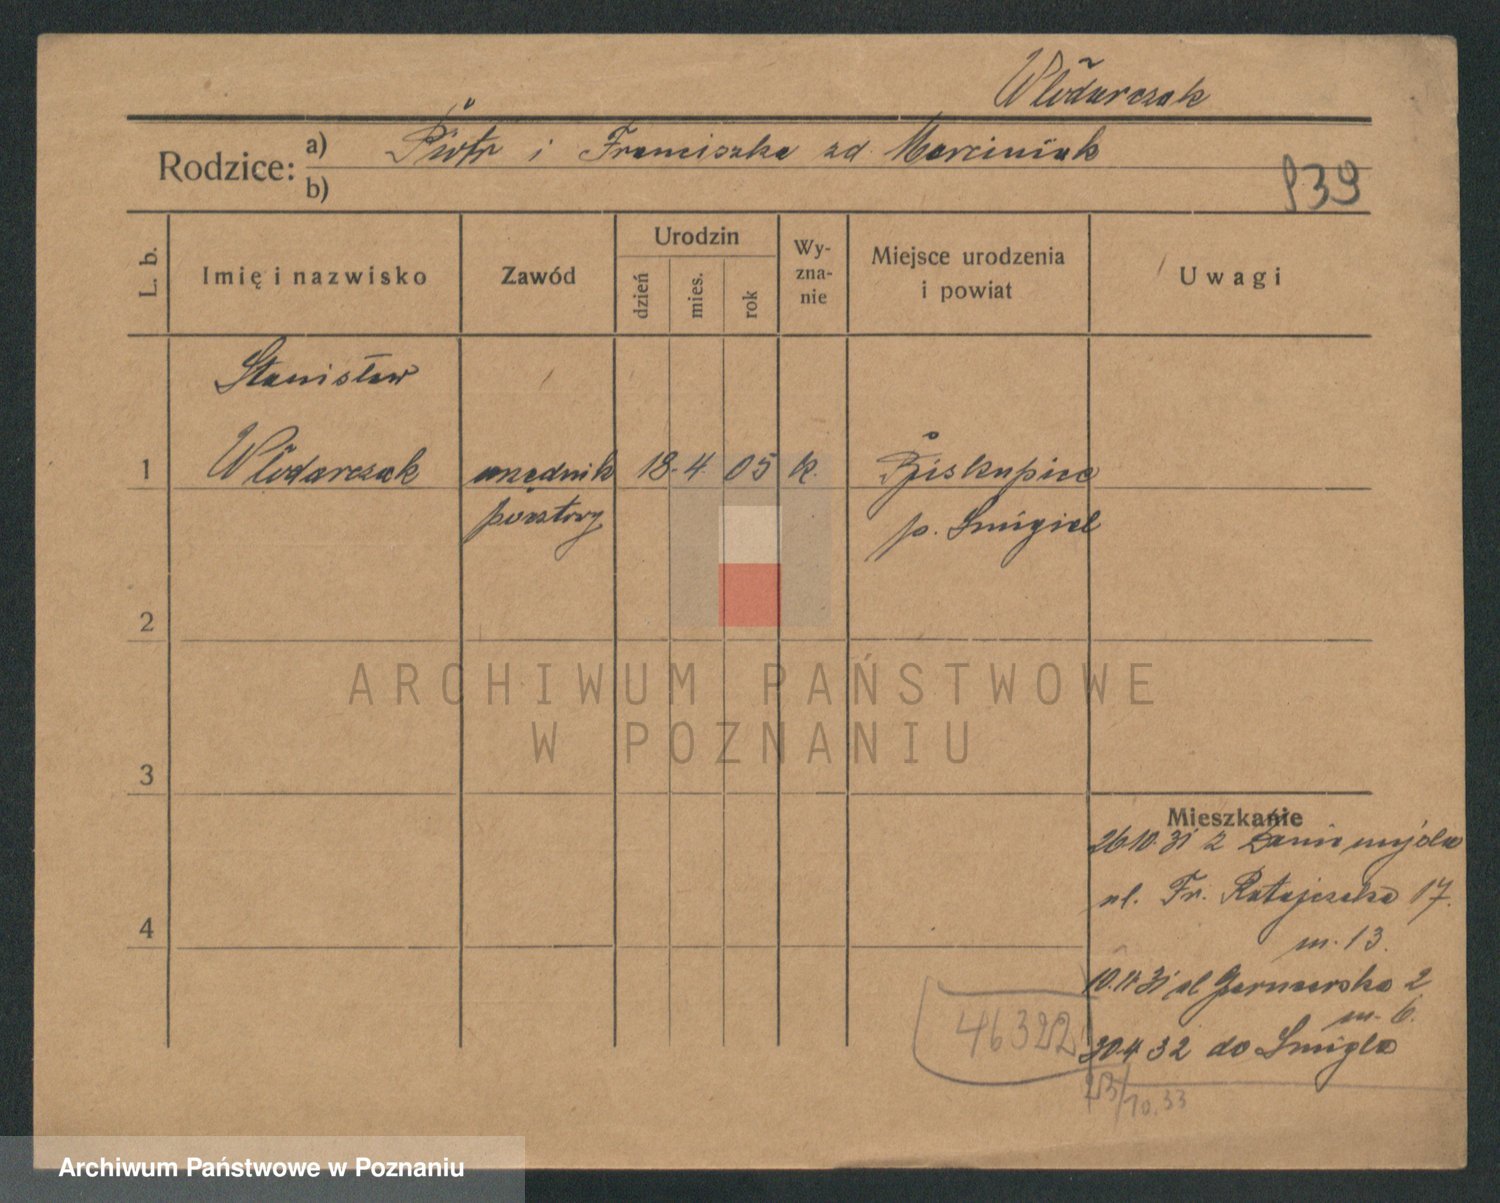 Włodarczak
Rodzice: a) Piotr i Franciszka zd. Marciniak
b)
939
L. b.
Imię i nazwisko
Zawód
Urodzin
dzień
mies.
rok
Wy-
zna-
nie
Miejsce urodzenia
i powiat
Uwagi
Stanisław
1 Włodarczak urzędnik 18. 4. 05 k. Biskupice
pocztowy p. Śmigiel
2
3
4
Mieszkanie
26.10.31 z Zaniemyśla
ul. Fr. Ratajczaka 17.
m. 13.
10.11.31 ul Garncarska 2
m. 6.
30.4 32 do Śmigla
46322
23/10.33
ARCHIWUM PAŃSTWOWE
W POZNANIU
Archiwum Państwowe w Poznaniu